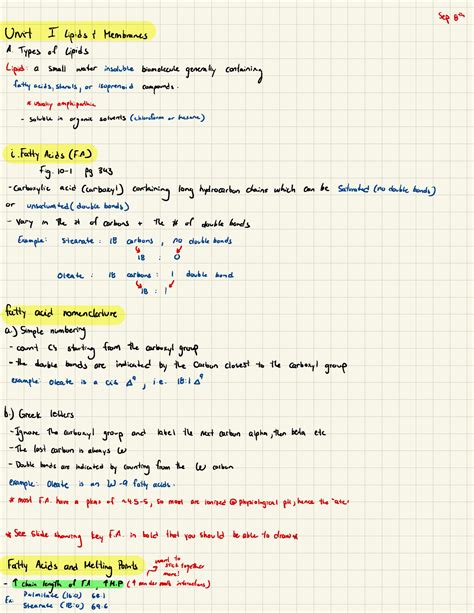 Sep 8th
Unit I Lipids & Membranes
A. Types of Lipids
Lipid: a small water insoluble biomolecule generally containing
fatty acids, sterols, or isoprenoid compounds.
* usually amphipathic
- soluble in organic solvents (chloroform or hexane)
i. Fatty Acids (F.A.)
Fig. 10-1 pg 343
- Carboxylic acid (carboxyl) containing long hydrocarbon chains which can be saturated (no double bonds)
or unsaturated (double bonds)
- Vary in the # of carbons + the # of double bonds
Example: Stearate : 18 carbons, no double bonds
18 : 0
Oleate : 18 carbons : 1 double bond
18 : 1
fatty acid nomenclature
a.) Simple numbering
- count C's starting from the carboxyl group
- the double bonds are indicated by the Carbon closest to the carboxyl group
example: Oleate is a cis Δ⁹, i.e. 18:1 Δ⁹
b.) Greek letters
- Ignore the carboxyl group and label the next carbon alpha, then beta etc
- The last carbon is always ω
- Double bonds are indicated by counting from the ω carbon
example: Oleate is an ω-9 fatty acids.
* most F.A. have a pKas of ~4.5-5, so most are ionized @ physiological pH, hence the "ate"
* See slide showing key F.A. in bold that you should be able to draw *
Fatty Acids and Melting Points
want to stick together more!
- ↑ chain length of F.A., ↑ M.P (↑ van der waals interactions)
Ex. Palmitate (16:0) 63.1
Stearate (18:0) 69.6